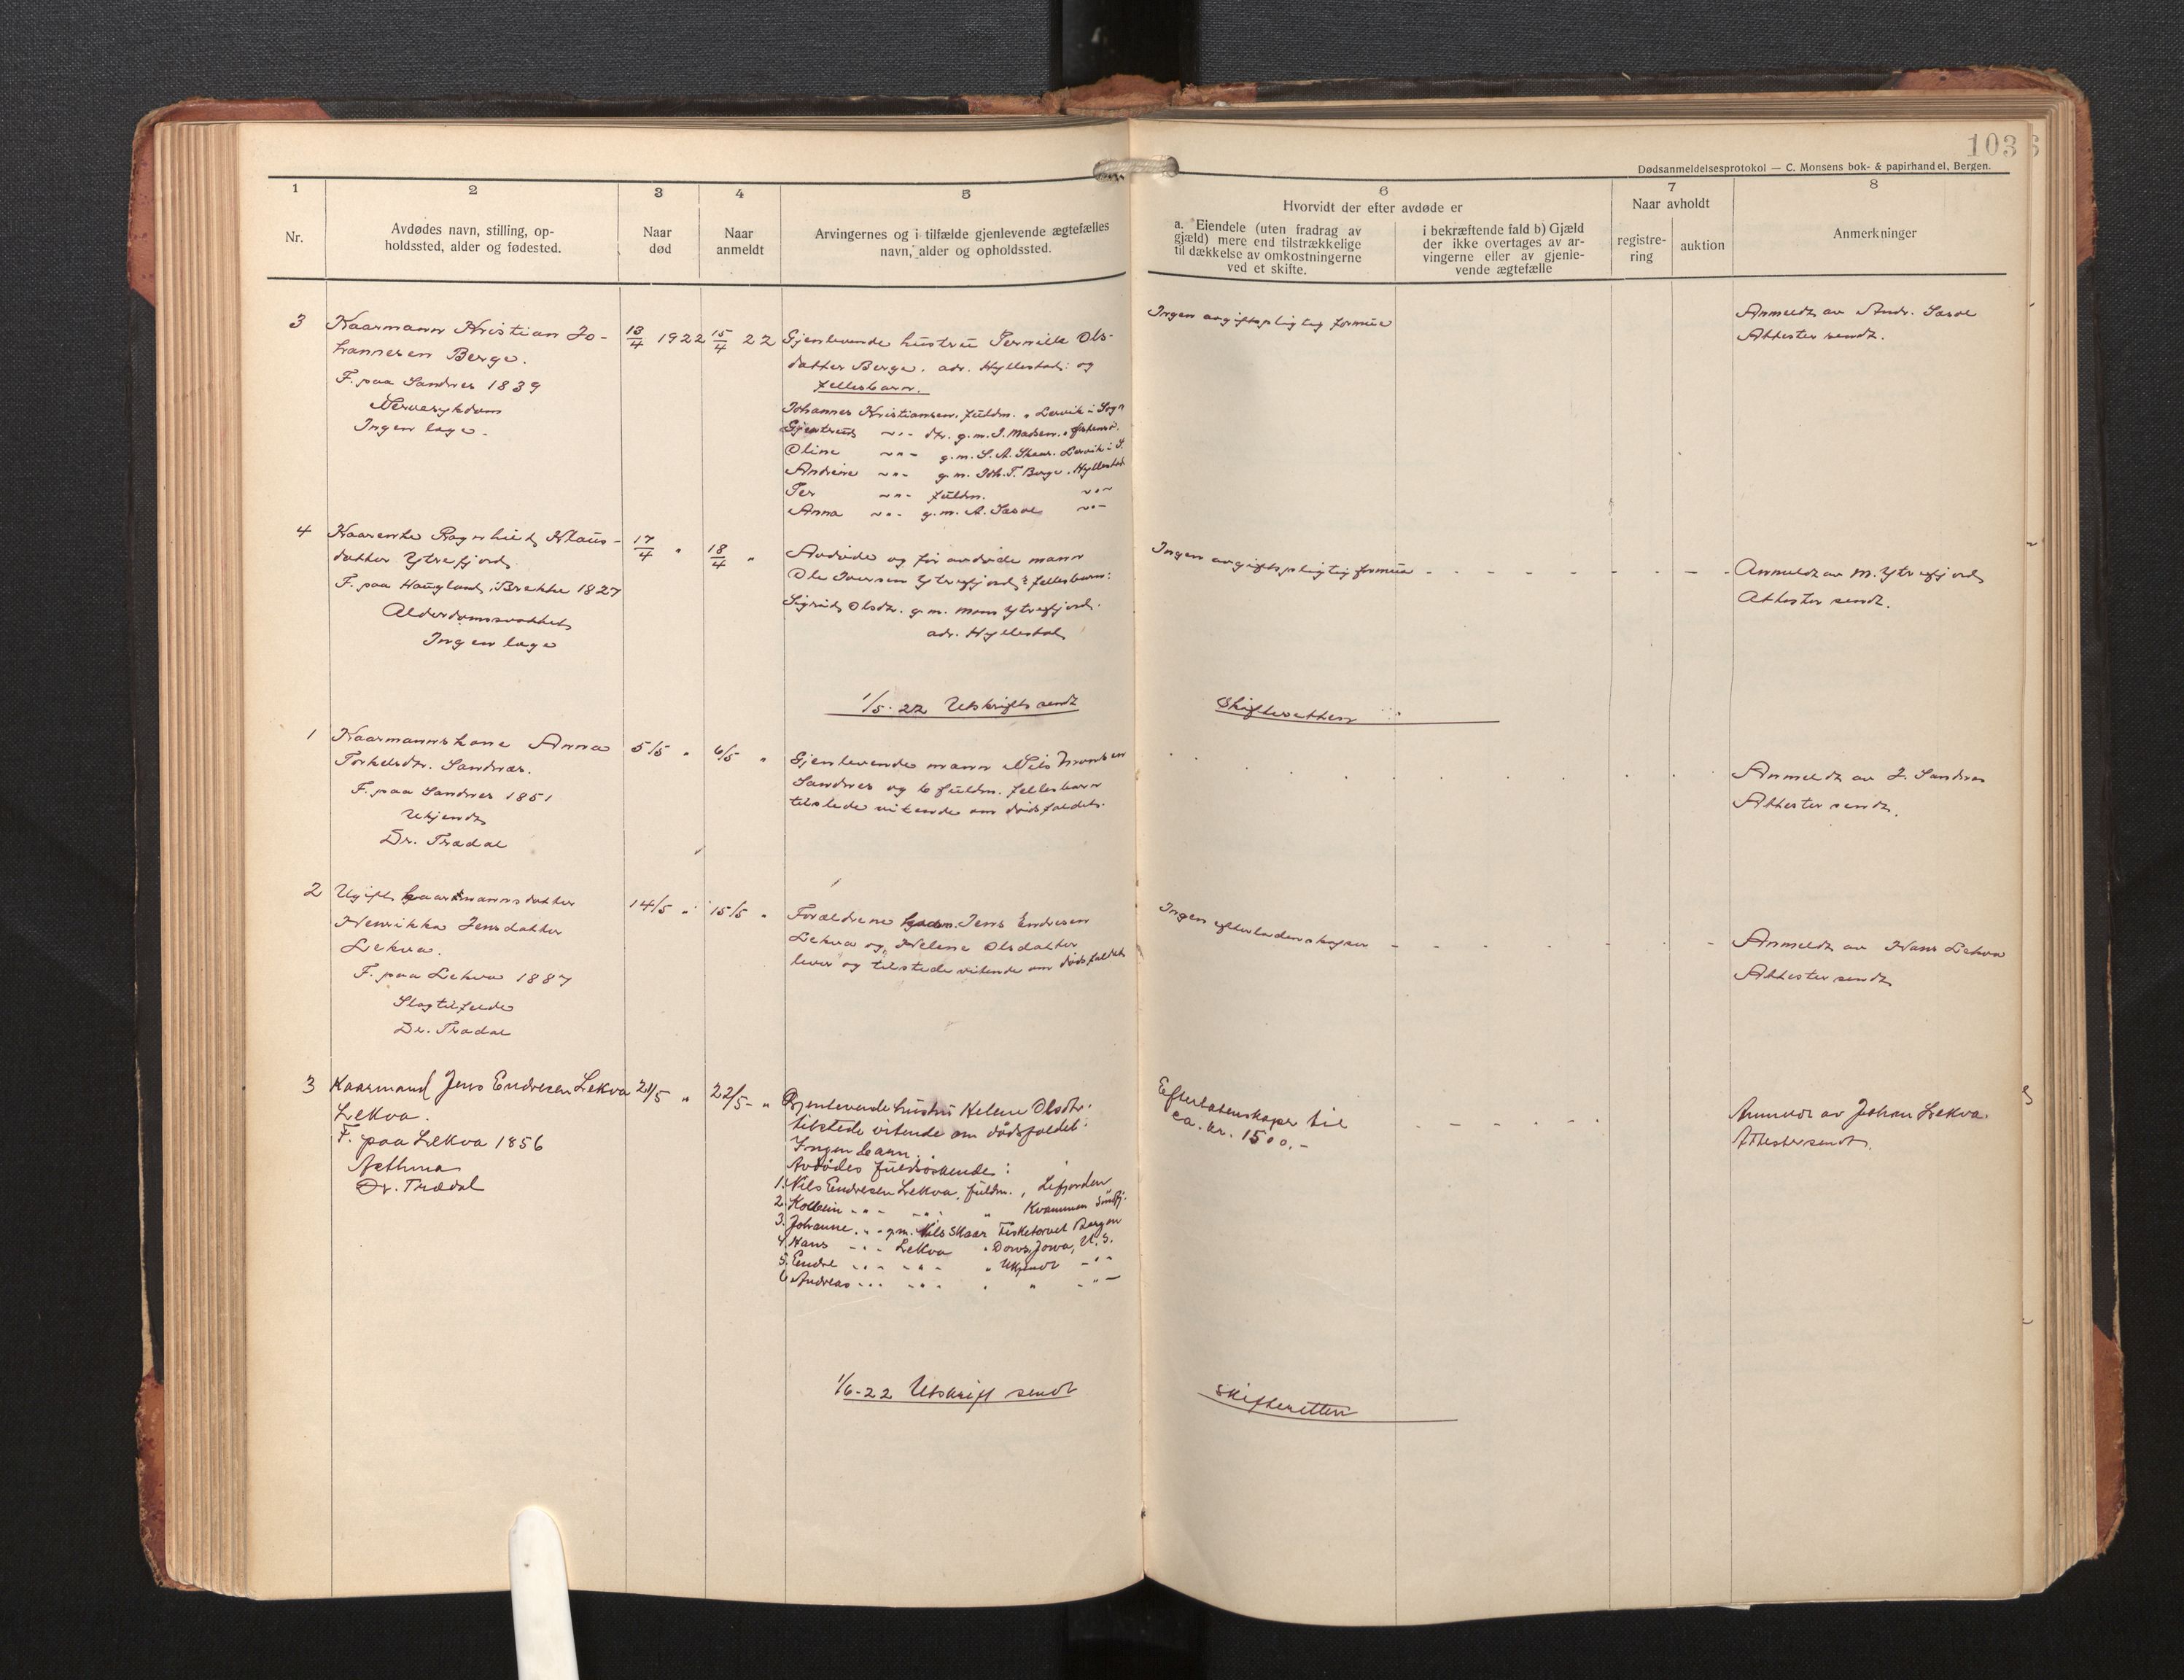 103
Dødsanmeldelsesprotokol — C. Monsens bok- & papirhandel, Bergen.
1
2
3
4
5
6
7
8
Nr.
Avdødes navn, stilling, op-
holdssted, alder og fødested.
Naar
død
Naar
anmeldt
Arvingernes og i tilfælde gjenlevende ægtefælles
navn, alder og opholdssted.
Hvorvidt der efter avdøde er
a. Eiendele (uten fradrag av
gjæld) mere end tilstrækkelige
til dækkelse av omkostningerne
ved et skifte.
i bekræftende fald b) Gjæld
der ikke overtages av ar-
vingerne eller av gjenle-
vende ægtefælle
Naar avholdt
registre-
ring
auktion
Anmerkninger
3
Kaarmann Kristian Jo-
hannesen Berge.
F. paa Sandnes 1839
Nervesykdom
Ingen læge.
13/4 1922
15/4 22
Gjenlevende hustru Pernille Ols-
datter Berge. adr. Hyllestad: og
fellesbarn.
Johannes Kristiansen, fuldm. " Lervik i Sogn
Gjertrud -"- dtr. g.m. J. Madsen.
Oline -"- g.m. S. A. Skaar. Lervik i S.
Andrine -"- g.m. Joh. T. Berge. Hyllestad
Per -"- fuldm. -"-
Anna -"- g.m. A. -"-
Ingen avgiftspligtig formue
Anmeldt av Andr.
Attester sendt.
4
Kaarenke Ragnhild Klaus-
datter Ytrefjord.
F. paa Haugland, Brekke 1827
Alderdomssvakhet
Ingen læge
17/4 "
18/4 "
Avdøde og før avdøde mann
Ole Iversen Ytrefjords fellesbarn:
Sigrid Olsdtr. g.m. Mons Ytrefjord.
adr. Hyllestad
Ingen avgiftspligtig formue - - - - - - - -
Anmeldt av M. Ytrefjord
Attester sendt.
1/5-22 Utskrift sendt
Skifteretten
1
Kaarmannskone Anna
Torkelsdtr. Sandnes.
F. paa Sandnes 1851
Ukjendt
Dr. Trædal
5/5 "
6/5 "
Gjenlevende mann Nils Monsen
Sandnes og 6 fuldm. fellesbarn
tilstede vitende om dødsfaldet.
Anmeldt av J. Sandnes
Attester sendt.
2
Ugift kaarmannsdatter
Henrikka Jensdatter
Lekva.
F. paa Lekva 1887
Slagtilfelde
Dr. Trædal
14/5 "
15/5 "
Forældrene kaarm. Jens Endresen
Lekva og Helene Olsdatter
lever og tilstede vitende om dødsfaldet
Ingen efterladenskaper - - - - - -
Anmeldt av Hans Lekva
Attester sendt
3
Kaarmand Jens Endresen Lekva
Lekva.
F. paa Lekva 1856
Asthma
Dr. Trædal
21/5 "
22/5 - "
Gjenlevende hustru Helene Olsdtr.
tilstede vitende om dødsfaldet.
Ingen barn.
Avdødes fuldsøskende:
1. Nils Endresen Lekva, fuldm., Lifjorden
2. Kolbein -"- -"- " Kvammen Søndfj.
3. Johanne -"- gm. Nils Skaar Fisketorvet Bergen
4. Hans -"- Lekva " Dows, Jowa, U.S.
5. Endre -"- -"- " Ukjendt -"-
6. Andreas -"- -"- " " -"-
Efterlatenskaper til
ca. kr. 1500.-
Anmeldt av Johan Lekva.
Attester sendt.
1/6-22 Utskrift sendt
Skifteretten